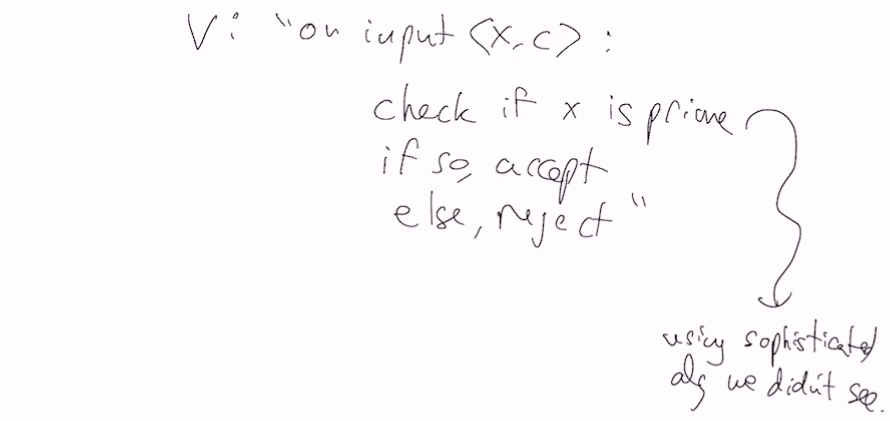 V: "on input <x,c>:
check if x is prime
if so, accept
else, reject"
using sophisticated
alg we didn't see.